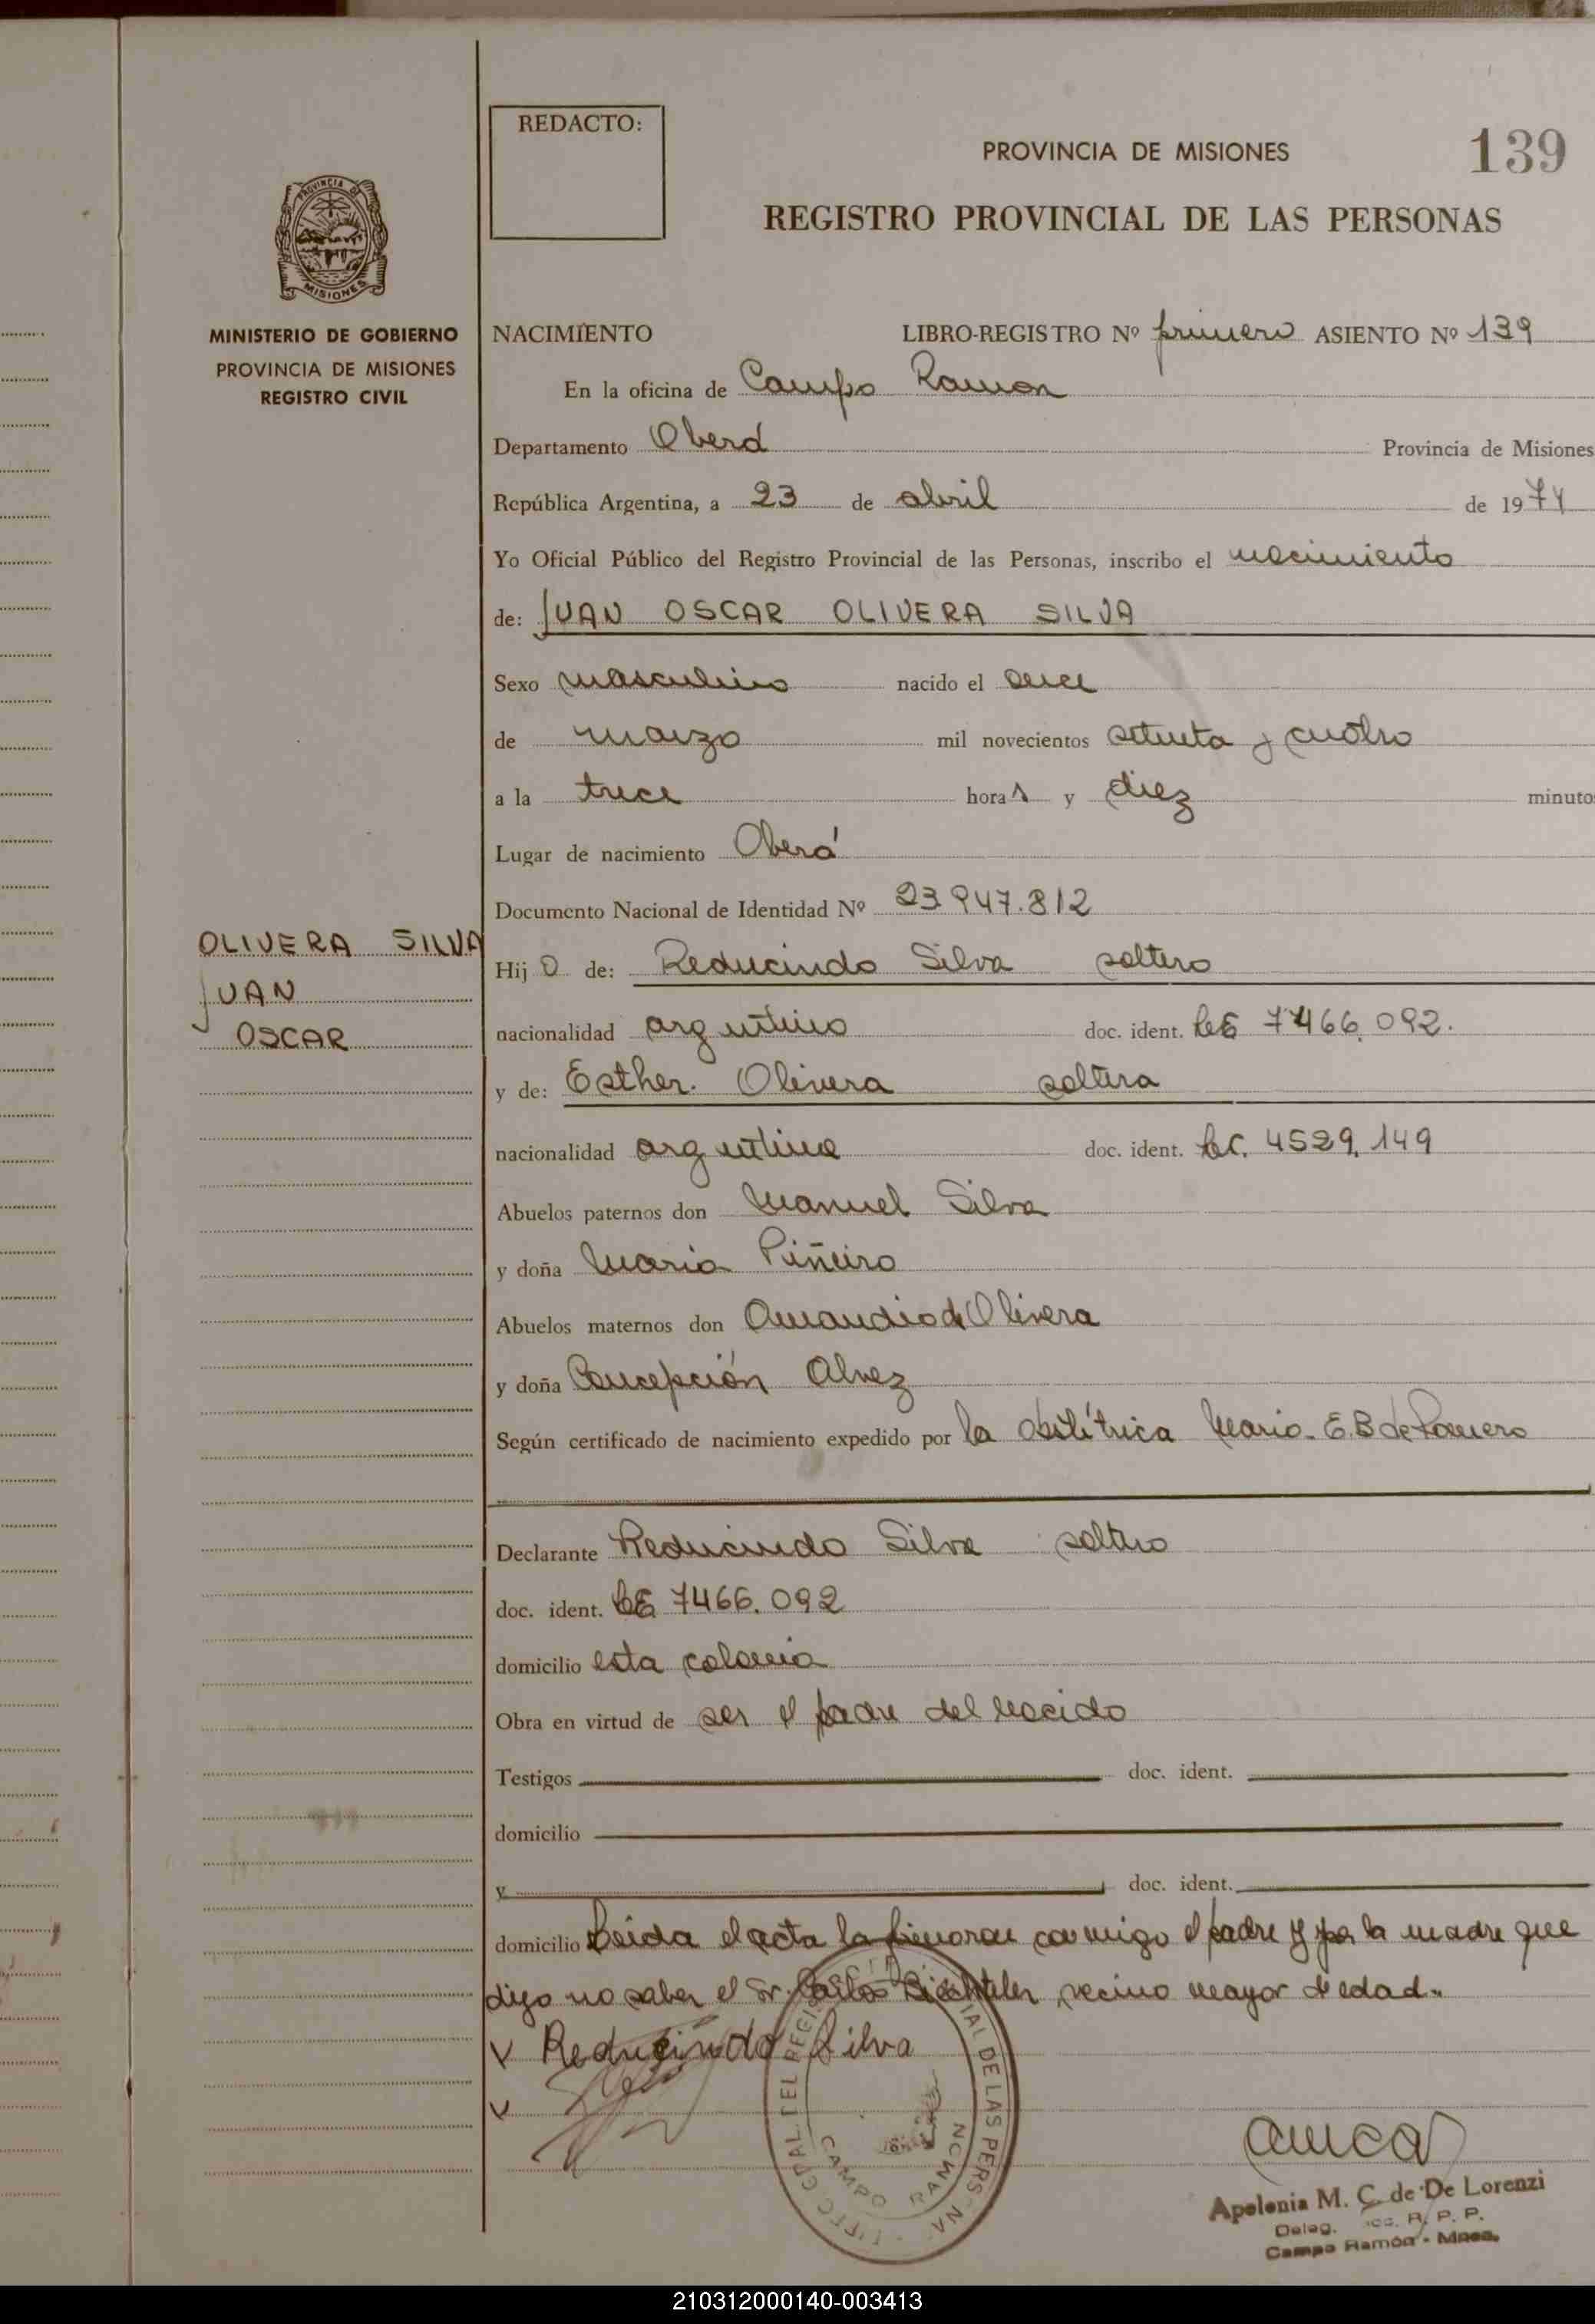 REDACTO:
PROVINCIA DE MISIONES
139
REGISTRO PROVINCIAL DE LAS PERSONAS
PROVINCIA DE
MISIONES
MINISTERIO DE GOBIERNO
PROVINCIA DE MISIONES
REGISTRO CIVIL
NACIMIENTO LIBRO-REGISTRO Nº primero ASIENTO Nº 139
En la oficina de Campo Ramon
Departamento Oberá Provincia de Misiones
República Argentina, a 23 de abril de 1974
Yo Oficial Público del Registro Provincial de las Personas, inscribo el nacimiento
de: JUAN OSCAR OLIVERA SILVA
Sexo masculino nacido el once
de marzo mil novecientos setenta y cuatro
a la trece horas y diez minuto
Lugar de nacimiento Oberá
Documento Nacional de Identidad Nº 23.947.812
OLIVERA SILVA
JUAN
OSCAR
Hijo de: Reducindo Silva soltero
nacionalidad argentino doc. ident. LE 7466.092.
y de: Esther. Olivera soltera
nacionalidad argentina doc. ident. LC. 4529.149
Abuelos paternos don Manuel Silva
y doña Maria Piñeiro
Abuelos maternos don Amandio de Olivera
y doña Concepción Alvez
Según certificado de nacimiento expedido por la obstétrica Maria. E.B de Romero
Declarante Reducindo Silva soltero
doc. ident. LE 7466.092
domicilio esta colonia
Obra en virtud de ser el padre del nacido
Testigos doc. ident.
domicilio
y doc. ident.
domicilio Leida el acta la firmaron conmigo el padre y por la madre que
dijo no saber el Sr. Carlos vecino mayor de edad.
V Reducindo Silva
V
CAMPO RAMON
Apolonia M. C. de De Lorenzi
Deleg. R. P. P.
Campo Ramón - Mnes.
210312000140-003413